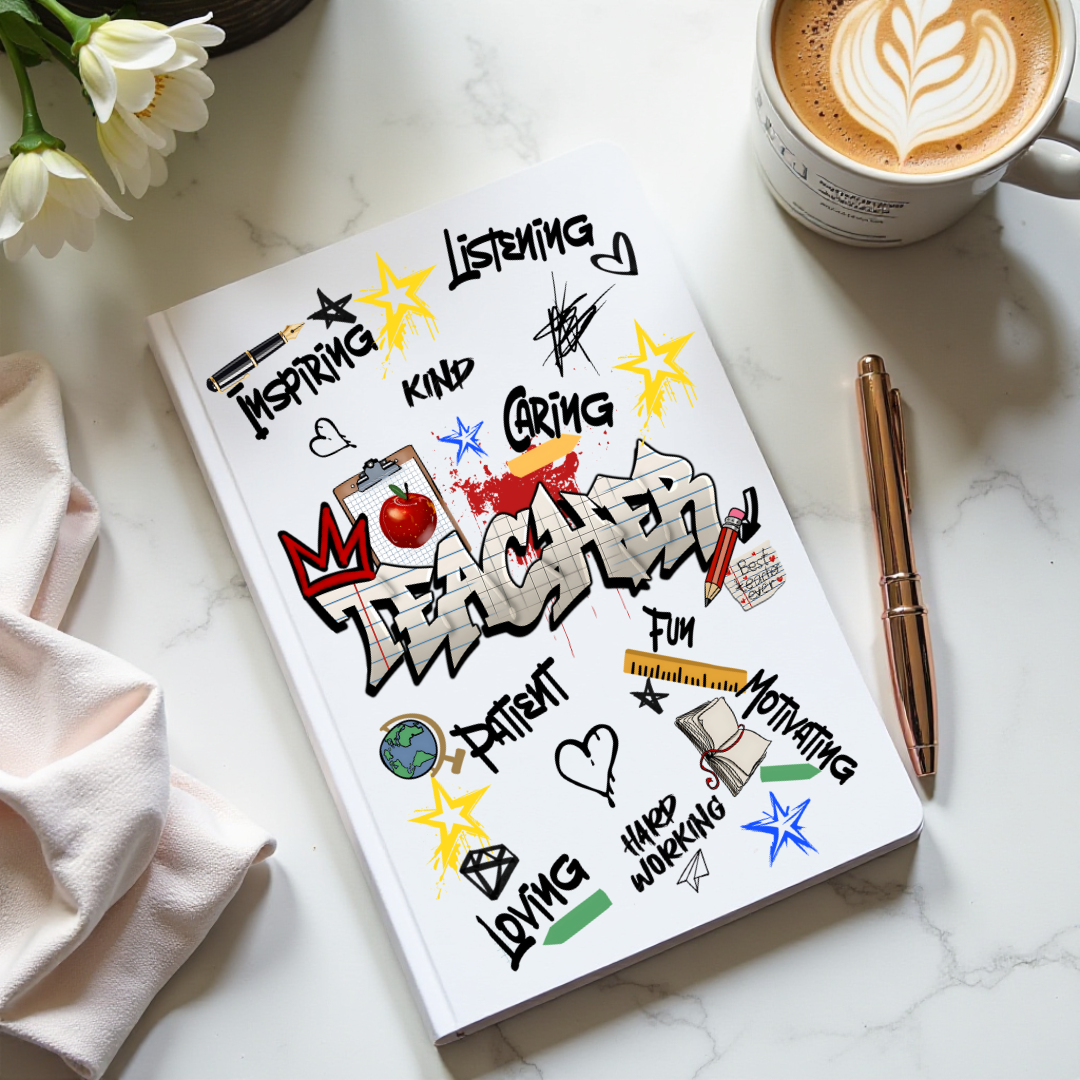 Listening
Inspiring
Kind
Caring
TEACHER
Best
teacher
ever
Fun
Patient
Motivating
Hard
Working
Loving